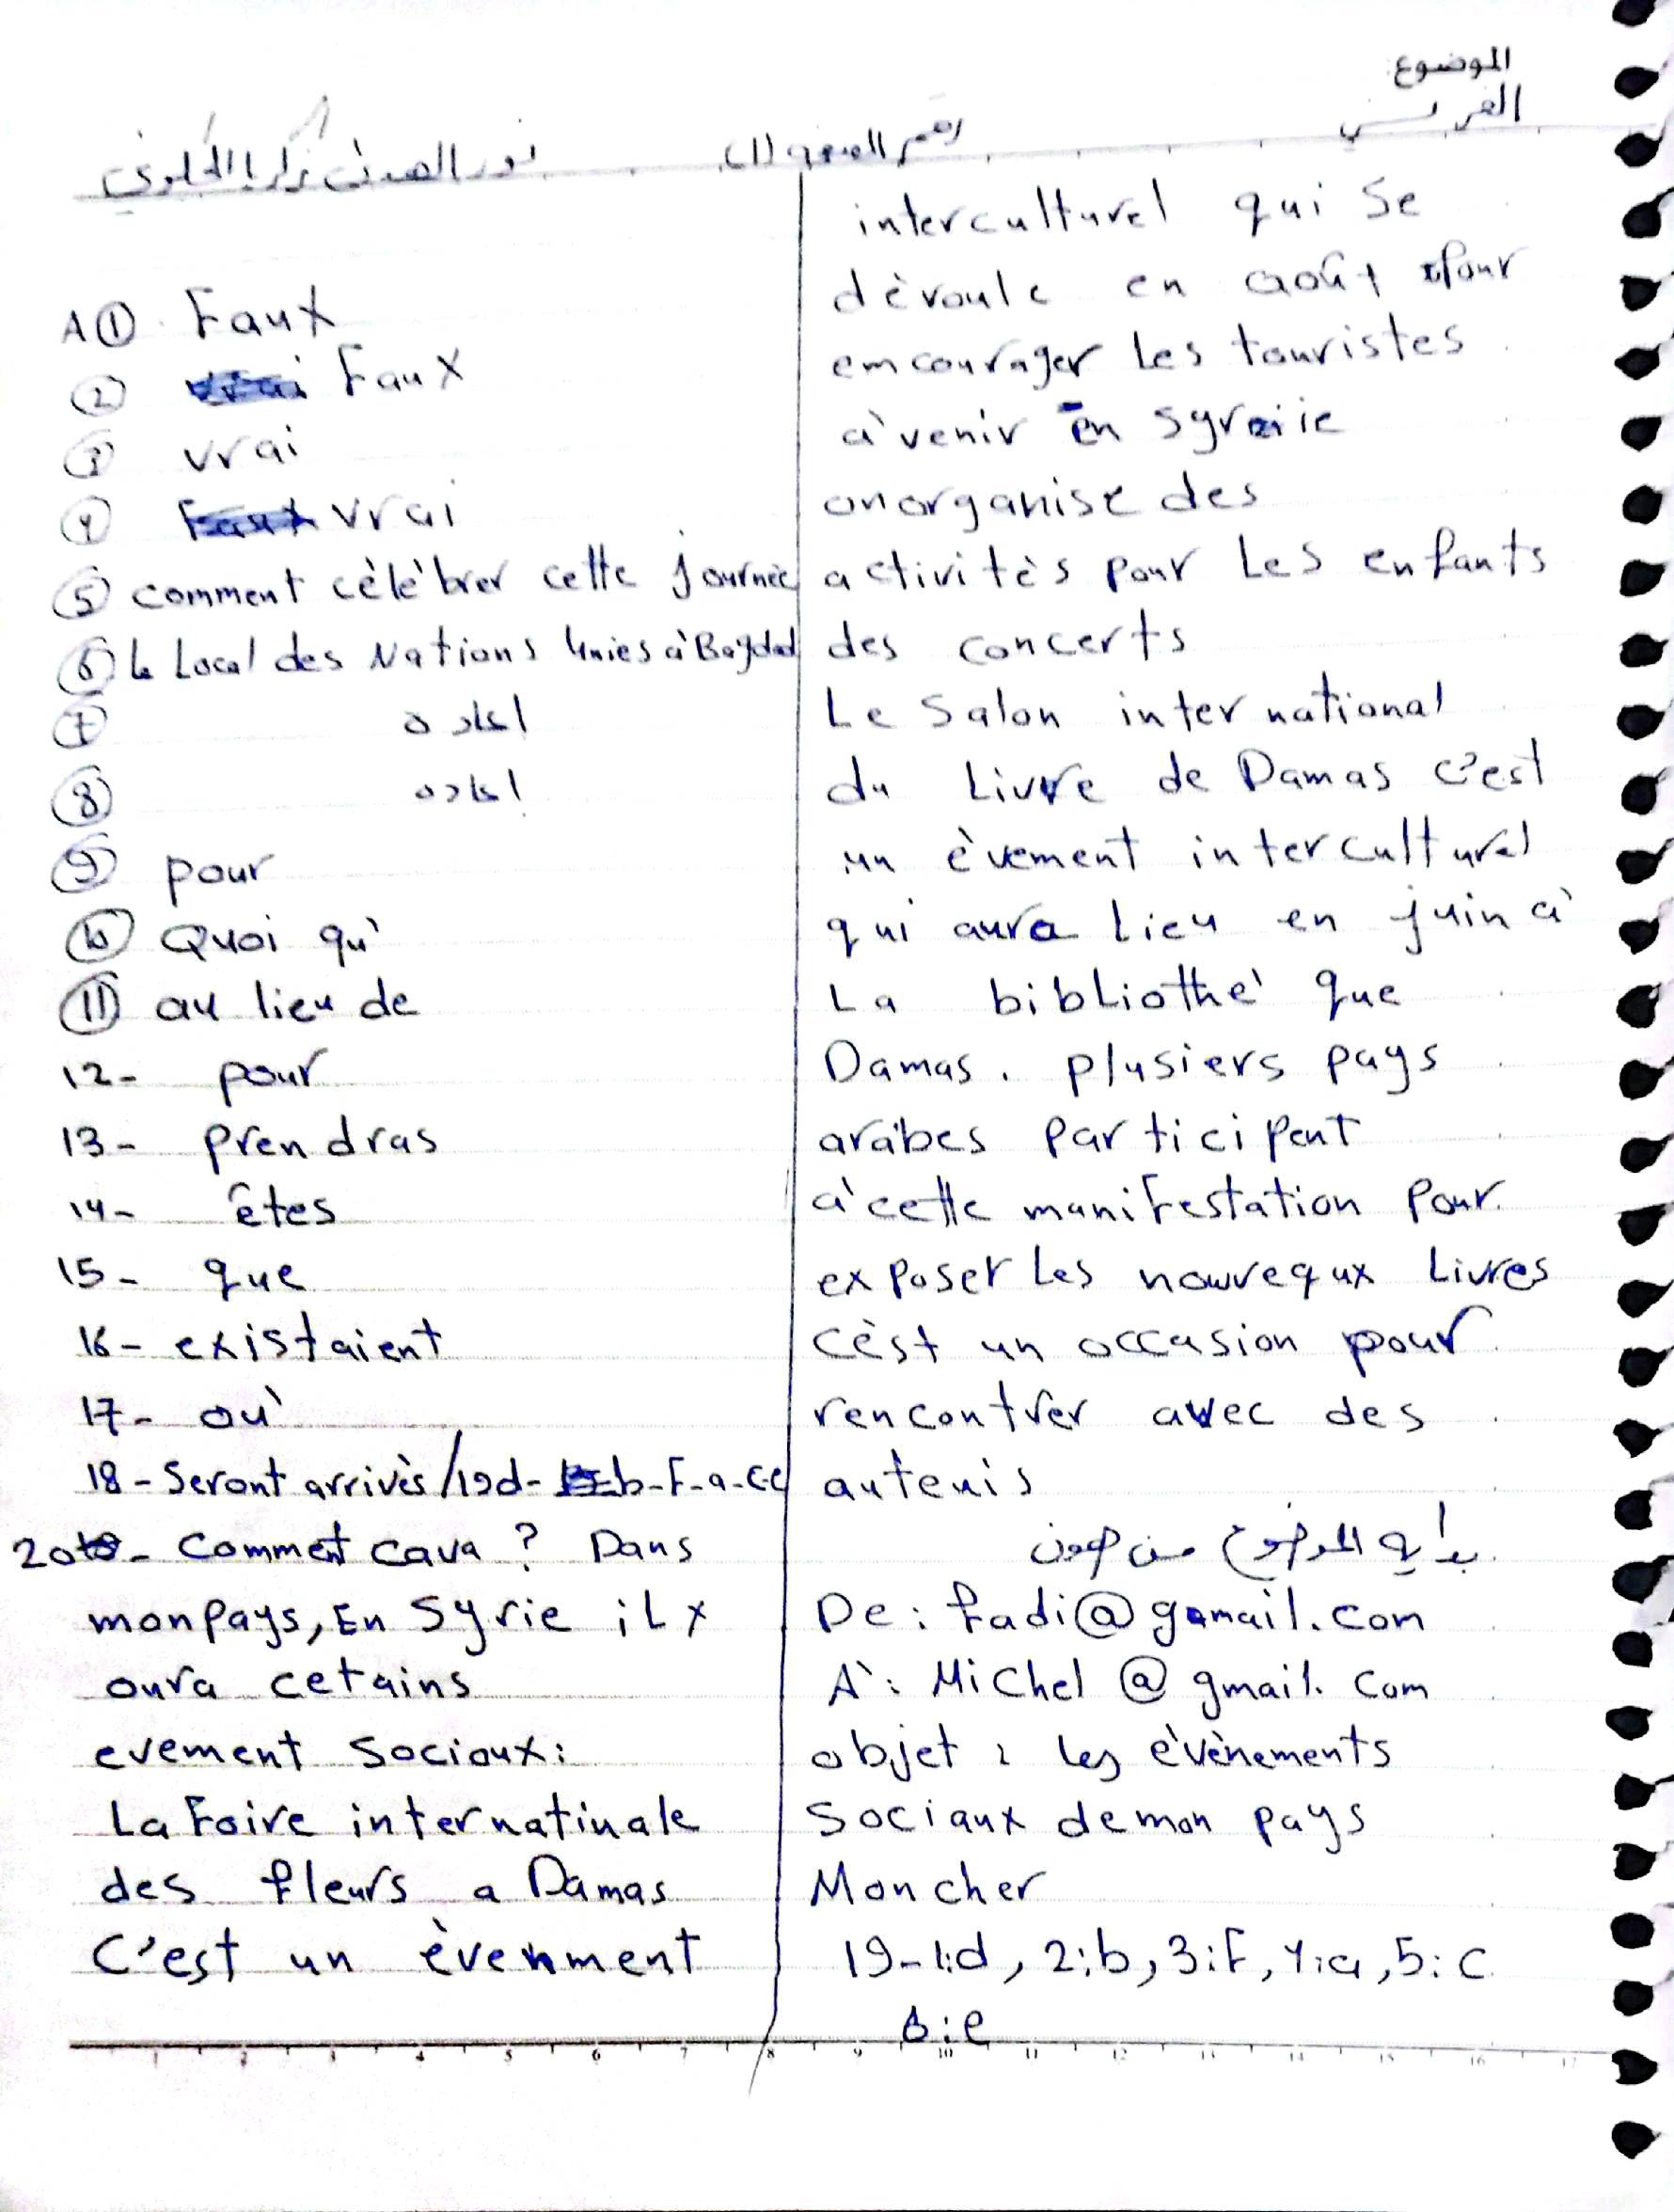 الموضوع
الفرنسي
رقم الصفحة (1)
نور الصدى زكريا الحلوي
A ① Faux
② vrai Faux
③ vrai
④ Faux vrai
⑤ comment cèlè brer cette journèe
⑥ le Local des Nations Unies à Bagdad
⑦ اعادة
⑧ اعاده
⑨ pour
⑩ Quoi qu'
⑪ au lieu de
12- pour
13- prendras
14- êtes
15- que
16- existaient
17- où
18- Seront arrivès /19d- b-F-a-c-e
20- Comment cava ? Dans
mon pays, En Syrie il y
aura cetains
evement Sociaux:
La Foire internatinale
des fleurs a Damas
C'est un èvenment
interculturel qui Se
dèroule en août pour
emcourager Les touristes
à venir en syrie
on organise des
activitès pour Les enfants
des concerts
Le Salon international
du Livre de Damas c'est
un èvement intercultural
qui aura Lieu en juin à
La bibliothè que
Damas. plusiers pays
arabes participent
à cette manifestation pour
exposer Les nouveaux Livres
cèst un occasion pour
rencontrer avec des
auteuis
بداية الموضوع من هون
De: fadi@gmail.com
A`: Michel @ gmail. Com
objet : les èvènements
Sociaux de mon pays
Mon cher
19-1:d, 2:b, 3:F, 4:a, 5: c
6:e
1 2 3 4 5 6 7 8 9 10 11 12 13 14 15 16 17